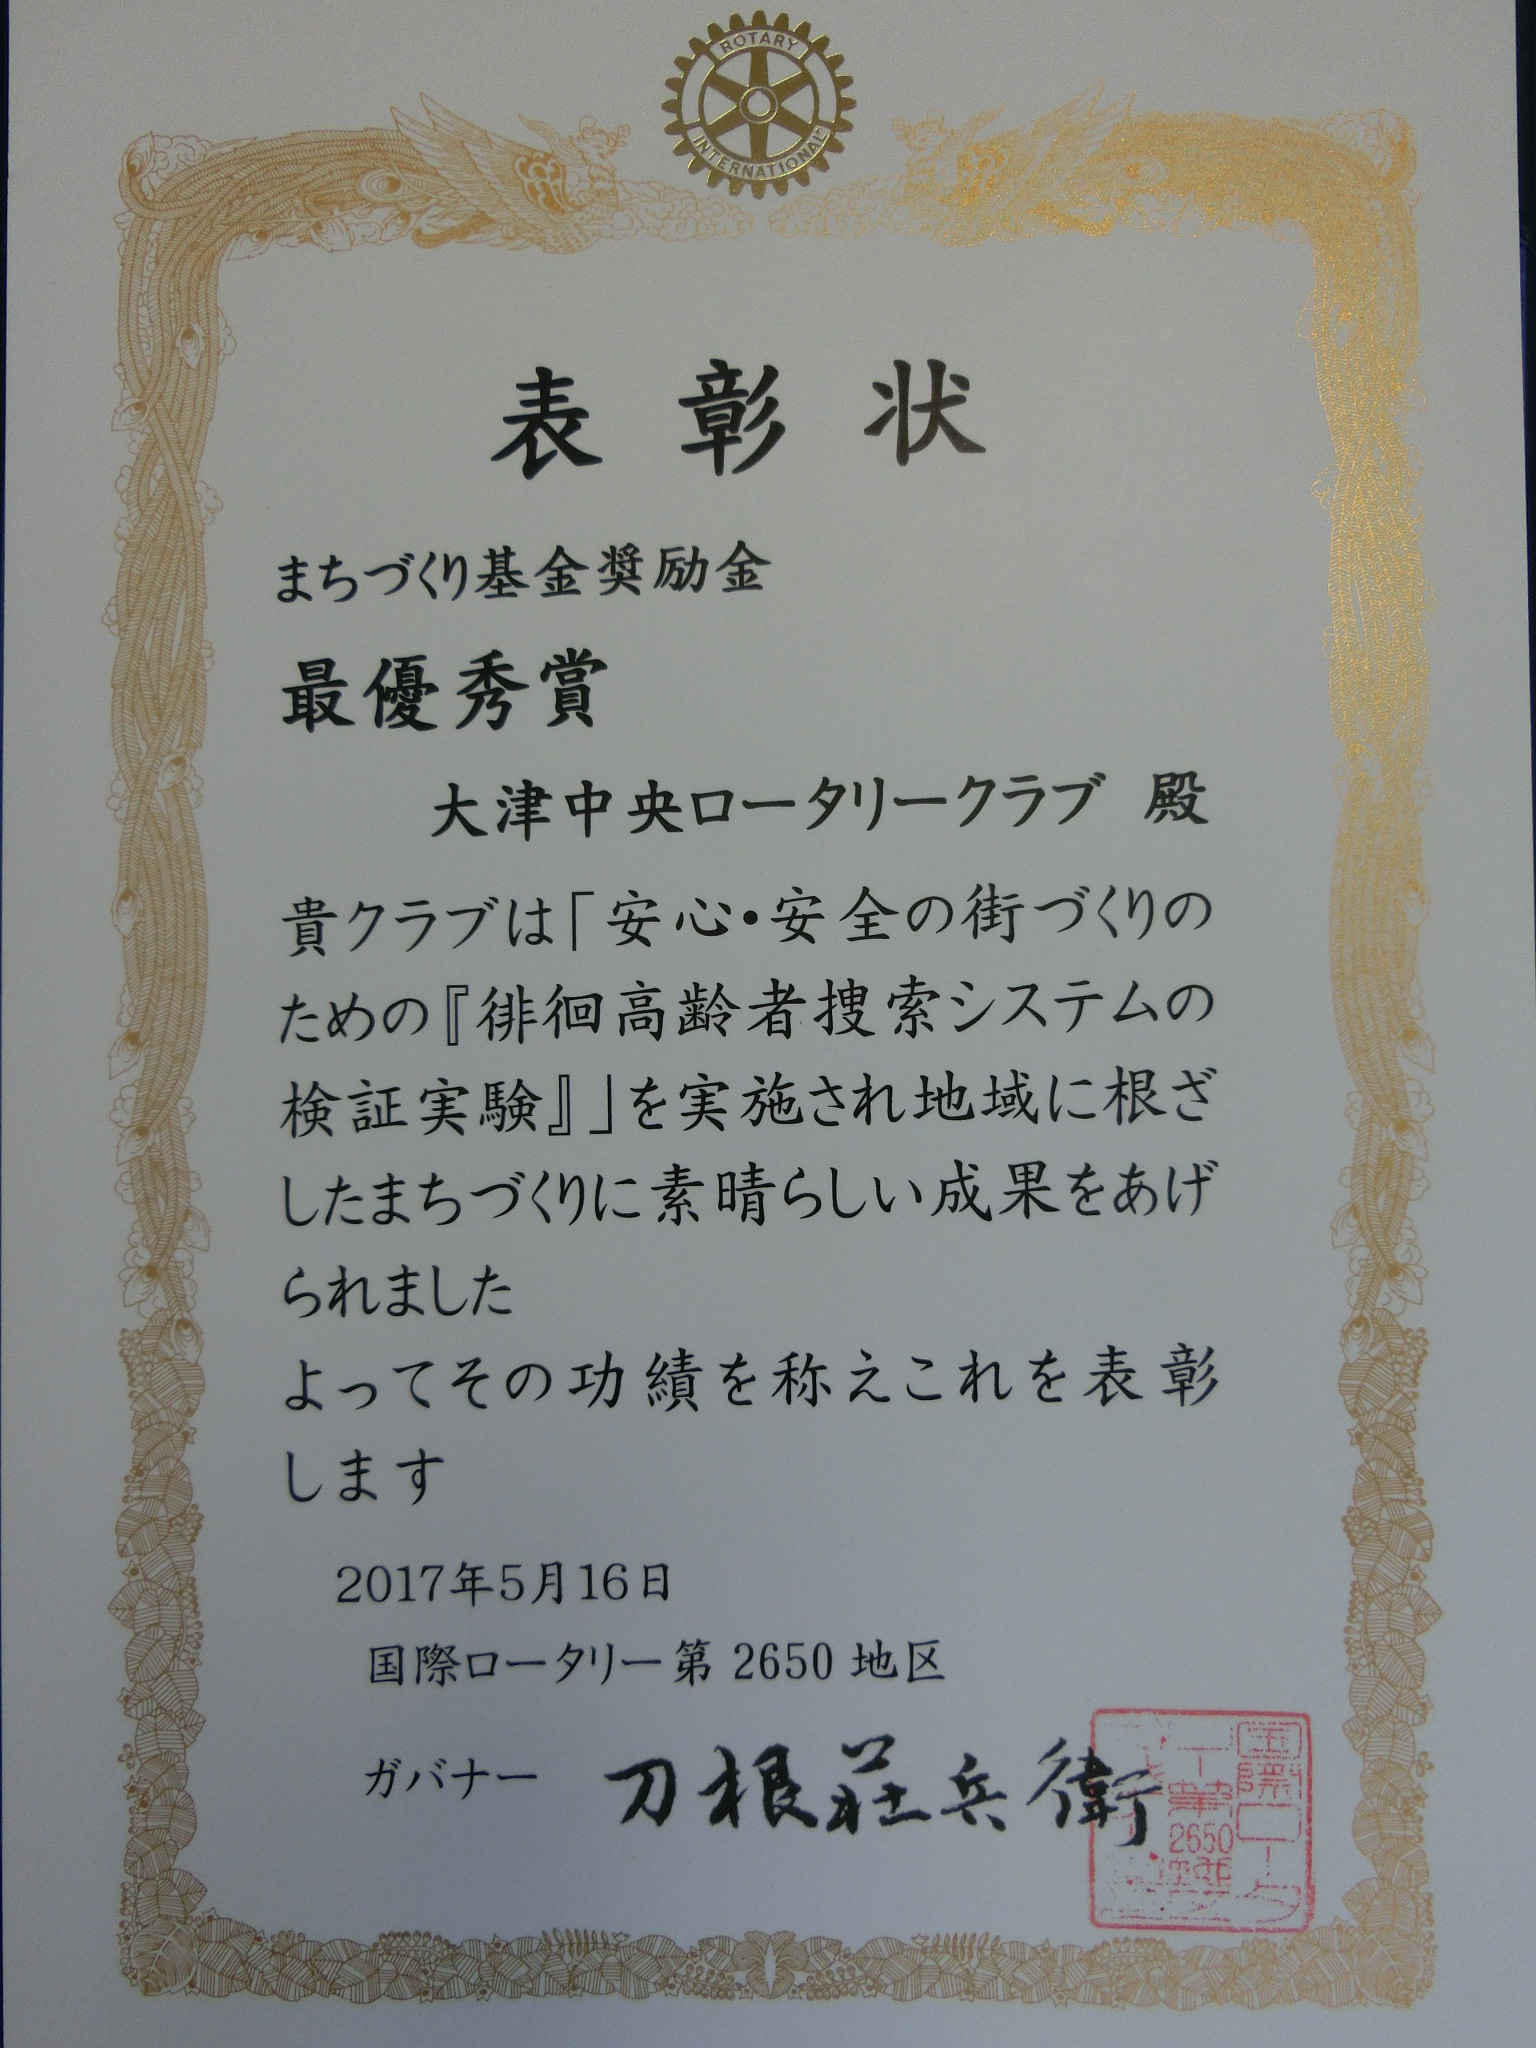 ROTARY
INTERNATIONAL
表彰状
まちづくり基金奨励金
最優秀賞
大津中央ロータリークラブ 殿
貴クラブは「安心・安全の街づくりの
ための『徘徊高齢者捜索システムの
検証実験』」を実施され地域に根ざ
したまちづくりに素晴らしい成果をあげ
られました
よってその功績を称えこれを表彰
します
2017年5月16日
国際ロータリー第 2650 地区
ガバナー 刀根荘兵衛
2650